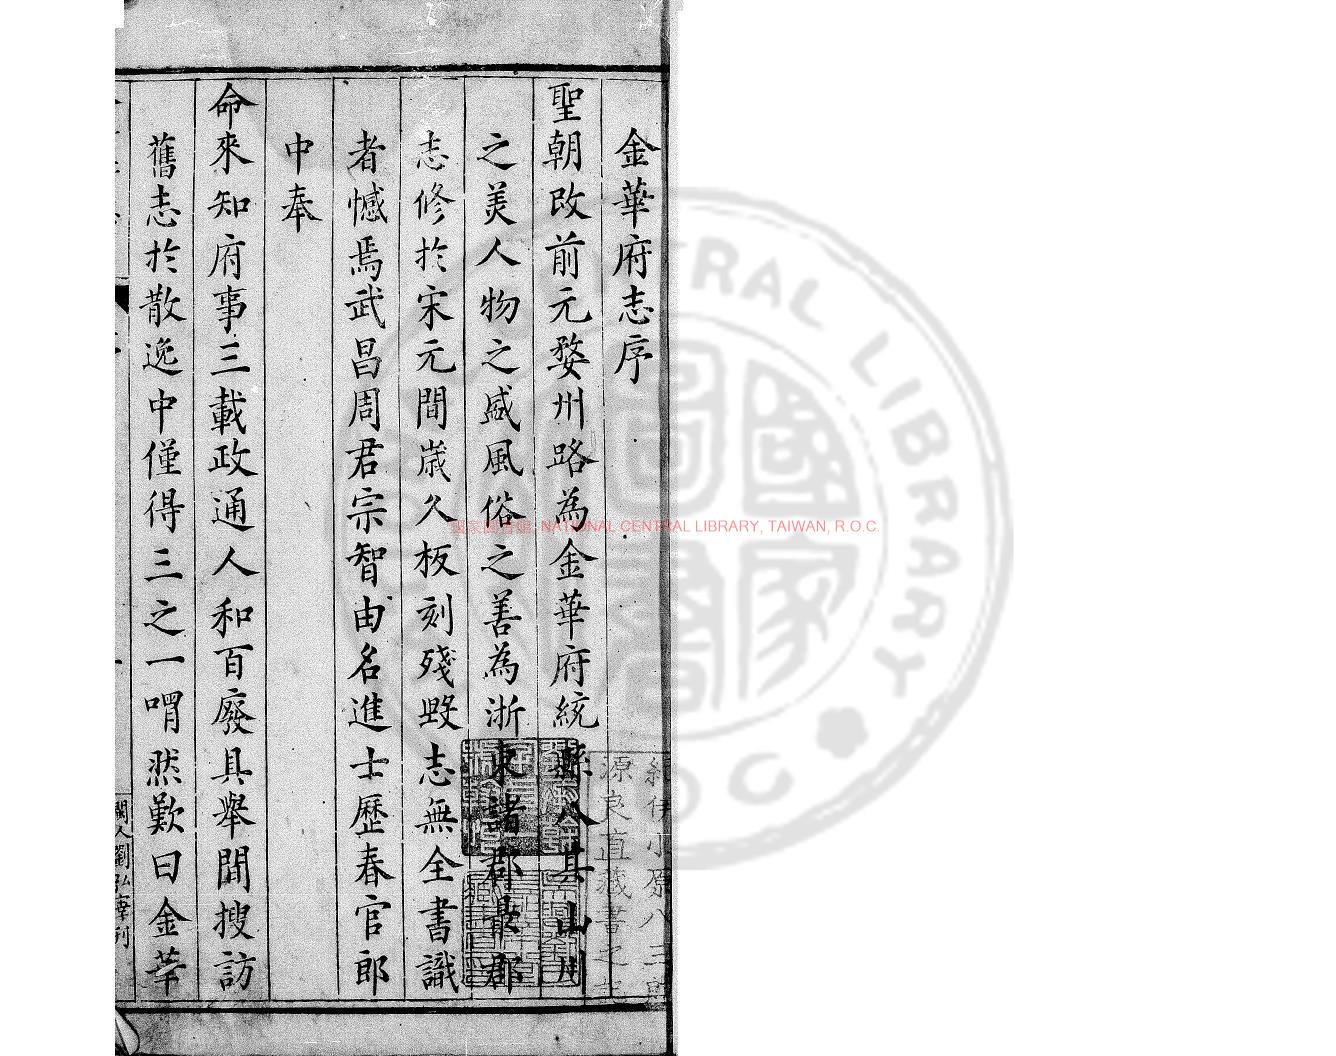 金華府志序
聖朝改前元婺州路為金華府統縣八其山川
之美人物之盛風俗之善為浙東諸郡最郡
志修於宋元間歲久板刻殘毀志無全書識
者憾焉武昌周君宗智由名進士歷春官郎
中奉
命來知府事三載政通人和百廢具舉間搜訪
舊志於散逸中僅得三之一喟然歎曰金華
閩人劉弘宰刊
源良直藏書之
國家圖書館 NATIONAL CENTRAL LIBRARY, TAIWAN, R.O.C.
CENTRAL LIBRARY